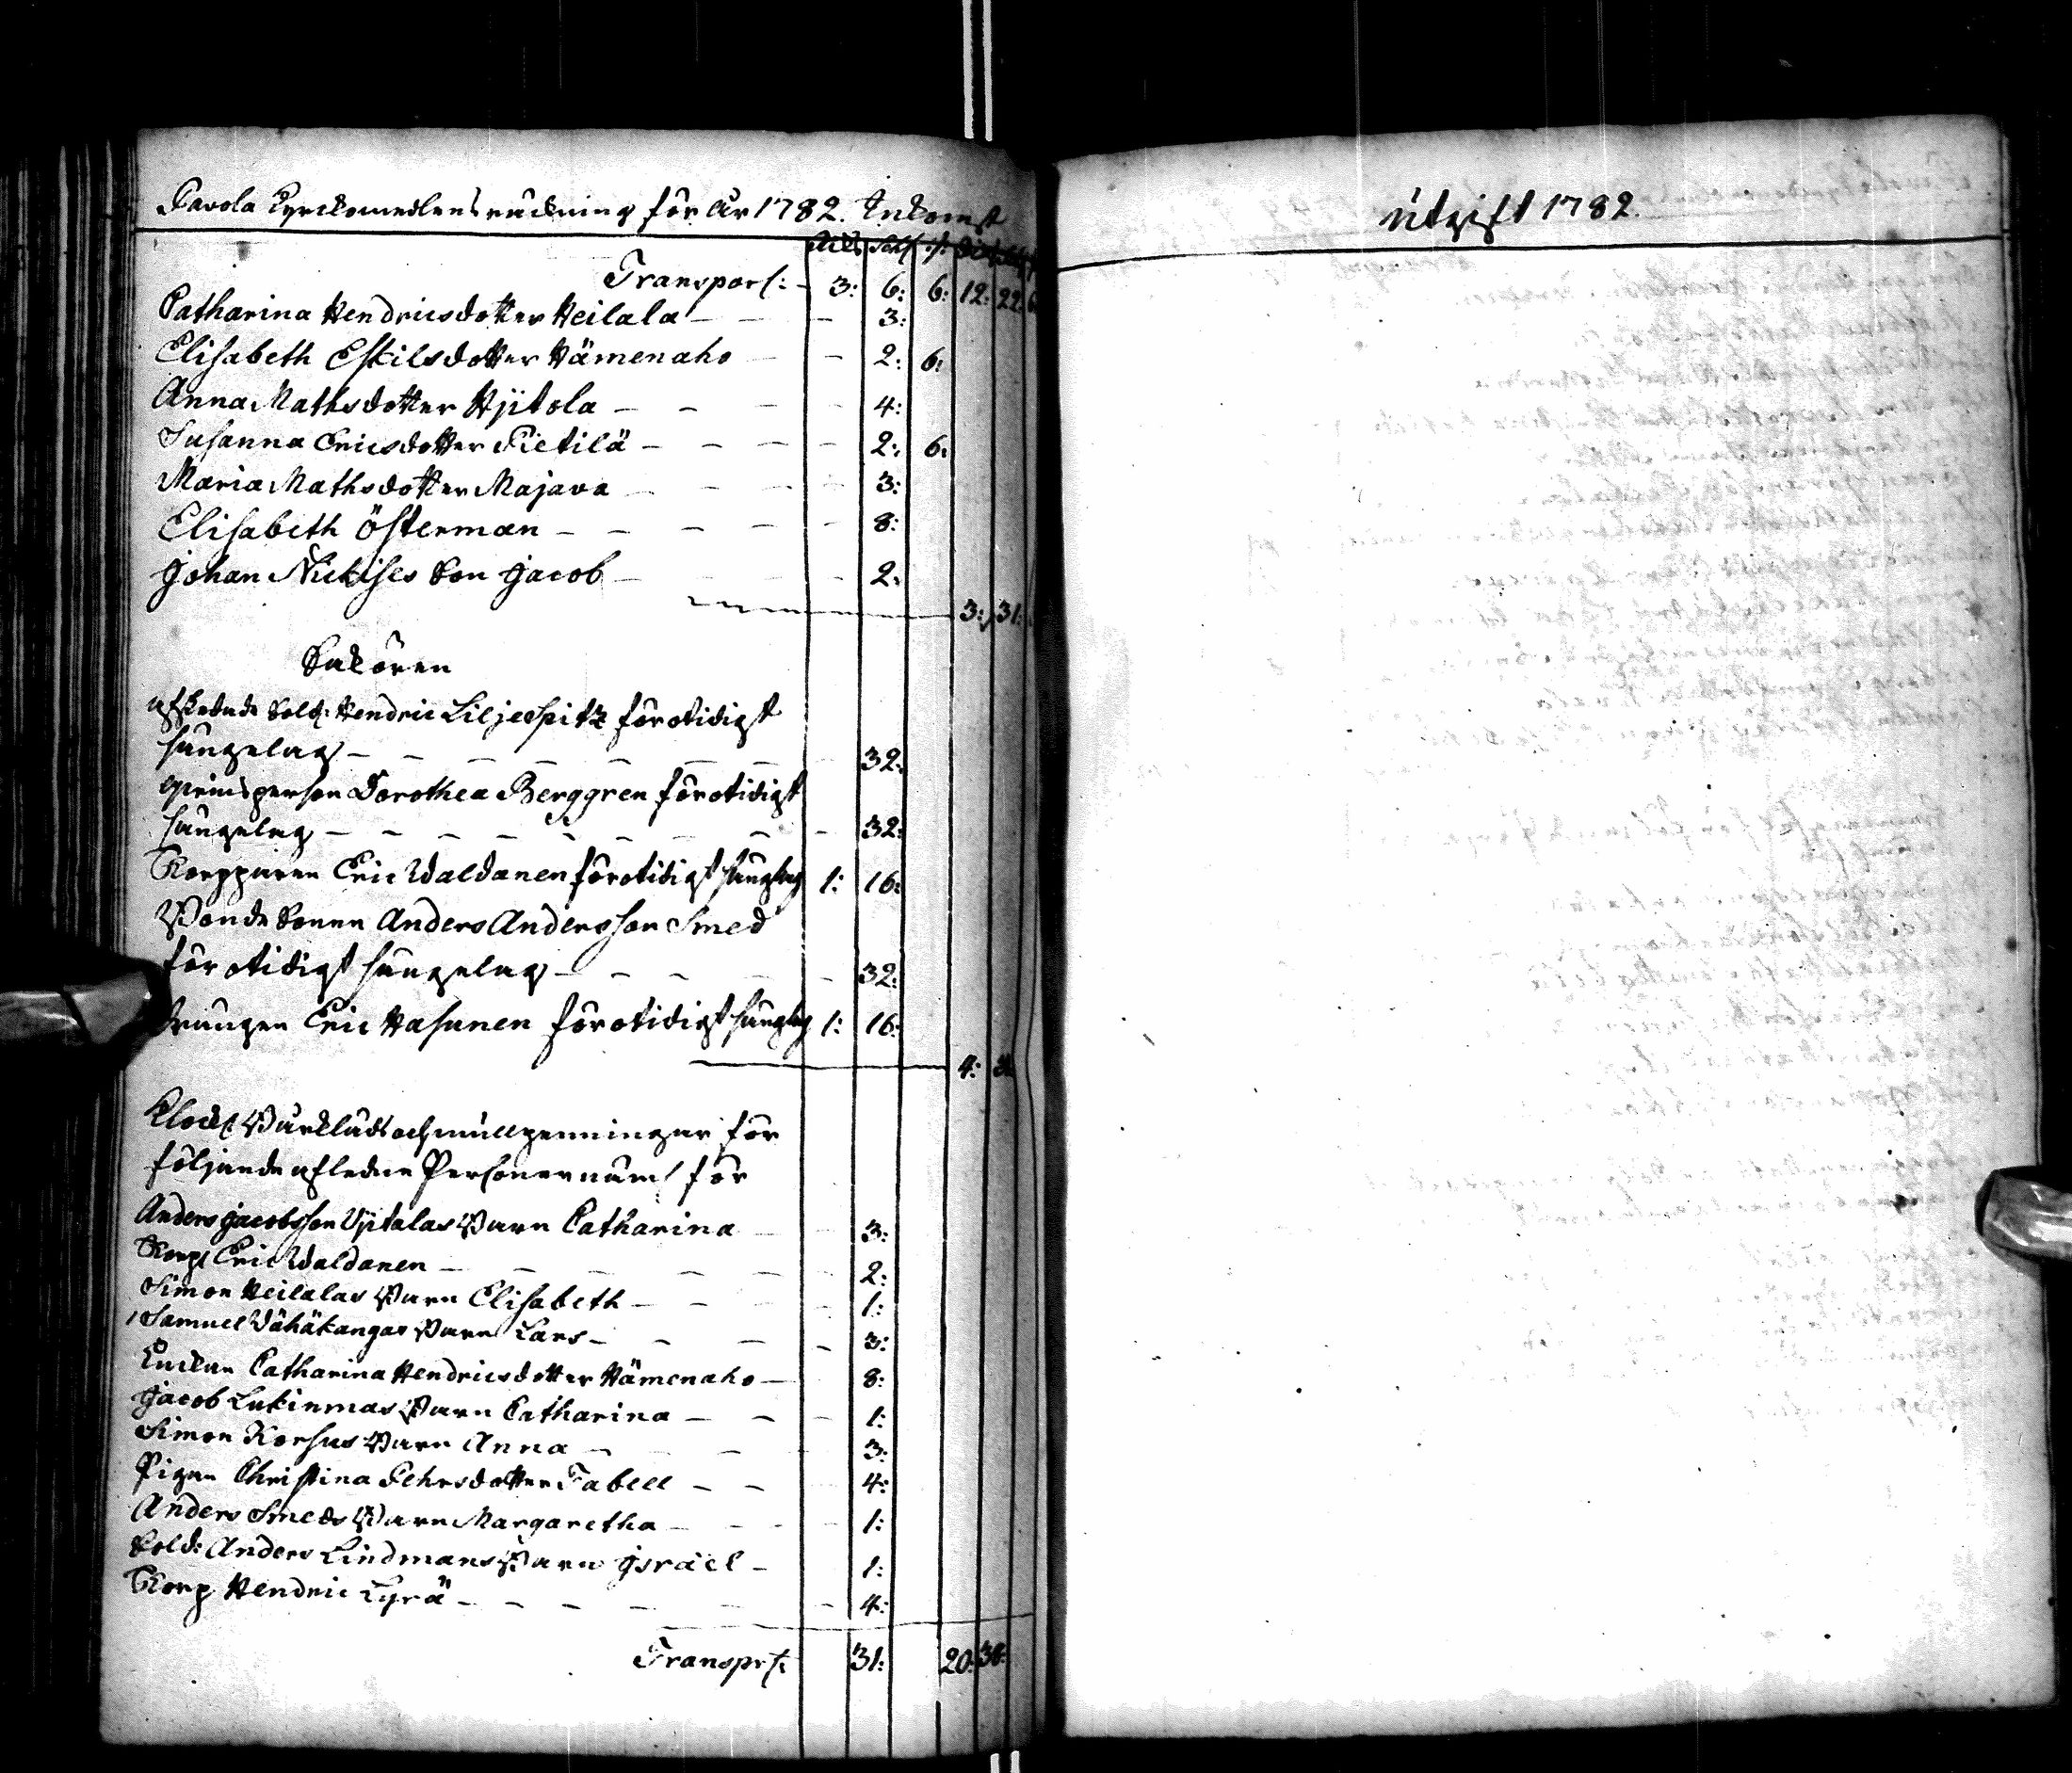 Pavola Kyrckomedlens räckning för År 1782. Inkomst
Rdr Sch rst
Transport: — 3: 6: 6: 12: 22: 6
Catharina Hendricsdotter Heilala — — — 3:
Elisabeth Eskilsdotter Hämenaho — — 2: 6:
Anna Mathsdotter Hÿitola — — — — 4:
Susanna Ericsdotter Pietilä — — — — 2: 6:
Maria Mathsdotter Majava — — — — 3:
Elisabeth Österman — — — — — 8:
Johan Nickises Son Jacob — — — — 2:
3: 31:
Sakören
afskedade Sold: Hendric Liljespitz för otidigt
sängelag — — — — — — — 32:
qvinsperson Dorothea Berggren för otidigt
sängelag — — — — — — — 32:
Skepparen Eric Waldanen för otidigt sänglag 1: 16:
Bonde Sonen Anders Andersson Smed
för otidigt sängelag — — — — — 32:
Drängen Eric Hasunen för otidigt sänglag 1: 16:
4:
Klock Bårkläds och mullpenningar för
följande afledne Personer näml för
Anders Jacobsson Uÿitalas Barn Catharina — — 3:
Skepp Eric Waldanen — — — — — 2:
Simon Heilalas Barn Elisabeth — — — — 1:
Samuel Vähäkangas Barn Lars — — — — 3:
Enckan Catharina Hendricsdotter Hämenaho — 8:
Jacob Lukinmas Barn Catharina — — — 1:
Simon Korsus Barn Anna — — — 3:
Pigan Christina Pehrsdotter Tabell — — 4:
Anders Smeds Barn Margaretha — — — — 1:
Sold: Anders Lindmans Barn Israël — 1:
Skepp Hendric Lyrä — — — — — — 4:
Transprt: 31: 20: 38:
Utgift 1782.